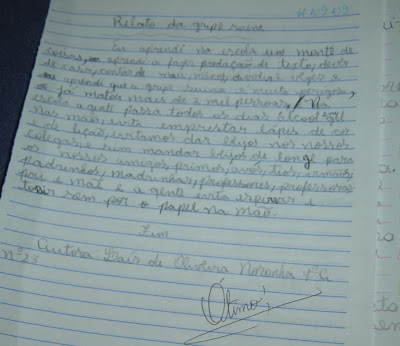 11/09/09
Relato da gripe suina
Eu aprendi na escola um monte de
coisas, aprendi a fazer produção de texto, deves
de casa, contas de mais, menos, dividir e vezes e
aprendi que a gripe suina é muito perigosa,
já matou mais de 2 mil pessoas. Na
escola a gente passa todos os dias álcool gel
nas mãos, evita emprestar lápis de cor
e de lição, evitamos dar beijos nos nossos
colegas, e sim mandar beijos de longe para
os nossos amigos, primos, avós, tios, irmãos,
padrinhos, madrinhas, professores, professoras
pais e mãe e a gente evita espirrar e
tossir sem por o papel na mão.
Fim
Autora: Laís de Oliveira Noronha 4ª
Nº 23
Ótimo!